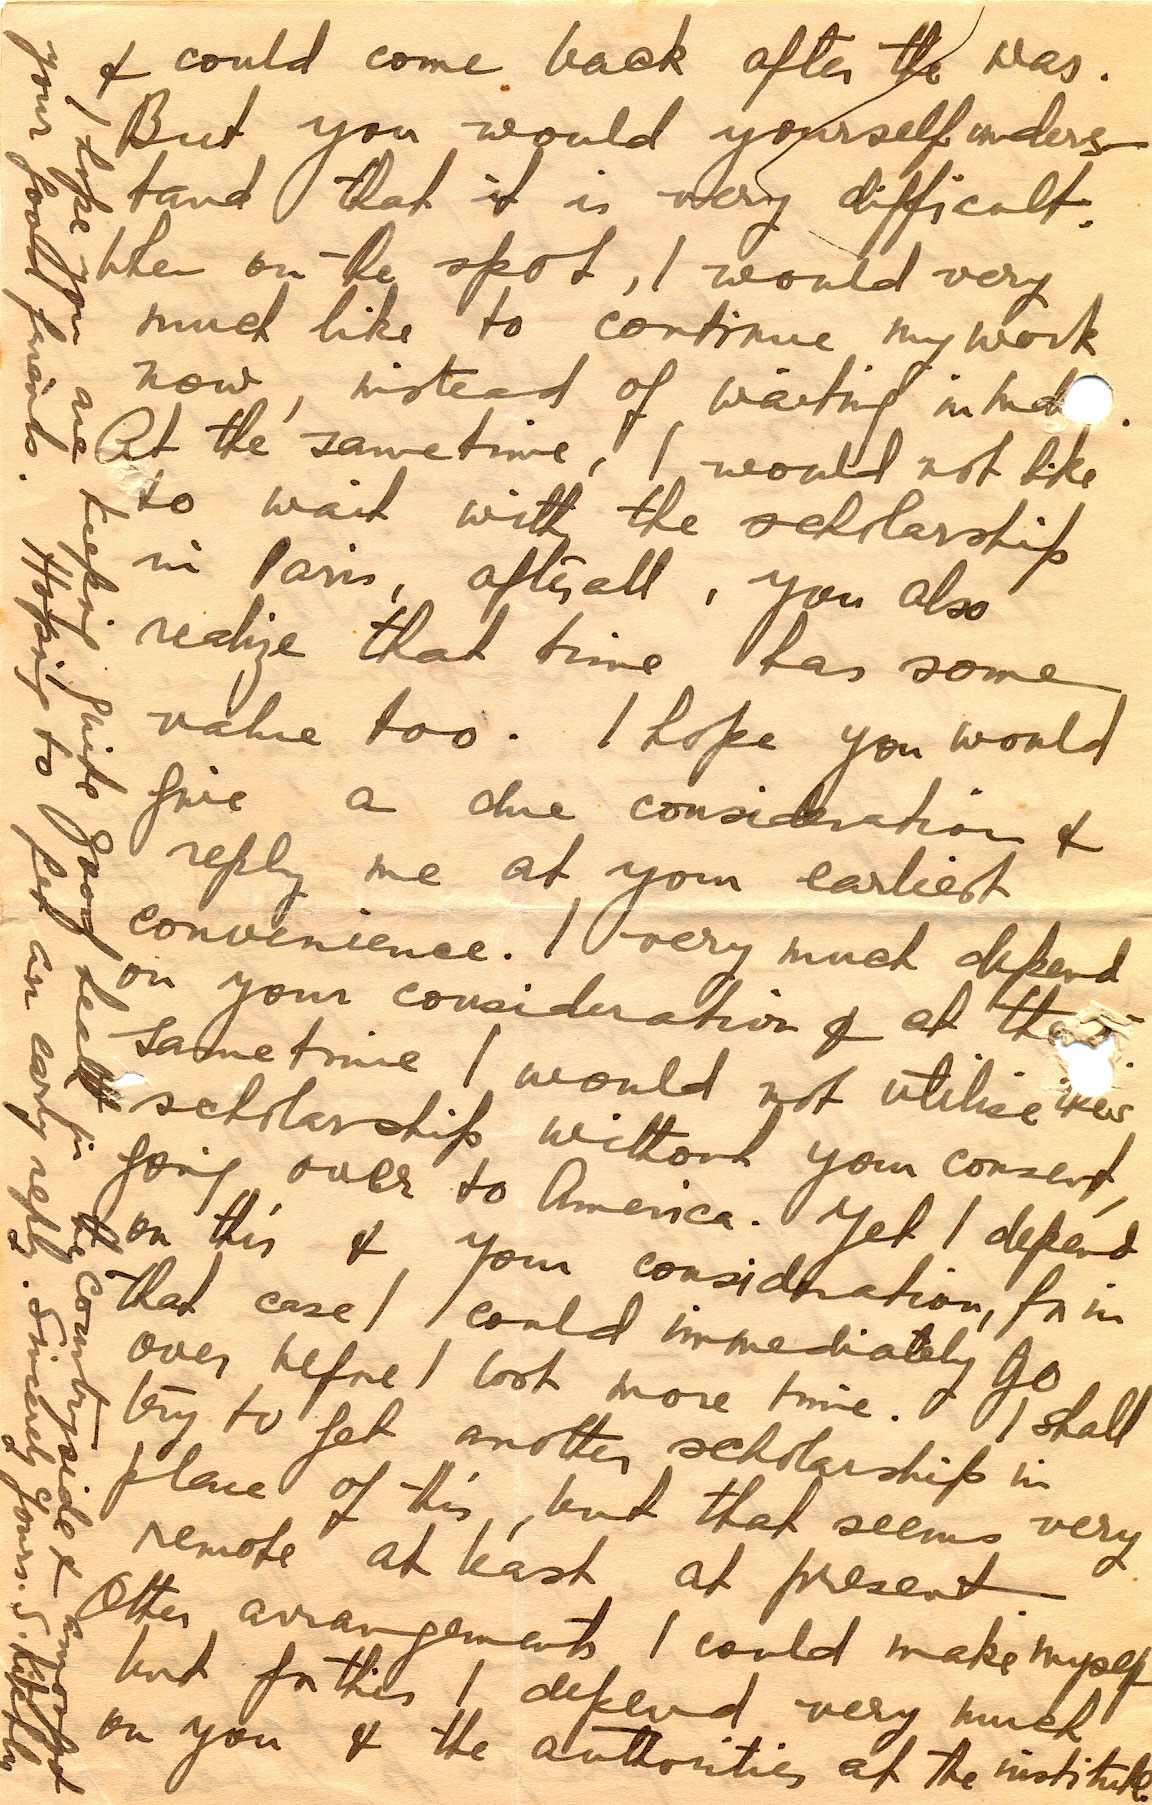 & could come back after the war.
But you would yourself unders-
tand that it is very difficult.
When on the spot, I would very
much like to continue my work
now, instead of waiting in Ind
At the sametime, I would not like
to wait with the scholarship
in Paris, after all, you also
realize that time has some
value too. I hope you would
give a due consideration &
reply me at your earliest
convenience. I very much depend
on your consideration & at the
sametime I would not utilise
scholarship without your consent,
going over to America. Yet I depend
on this & your consideration, for in
that case I could immediately go
over before I lost more time. I shall
try to get another scholarship in
place of this, but that seems very
remote at least at present
Other arrangements I could make myself
but for this I depend very much
on you & the authorities at the institute.
I hope you are keeping quite good health in the Countryside & amongst
your good friends. Hoping to get an early reply. Sincerely yours. S.